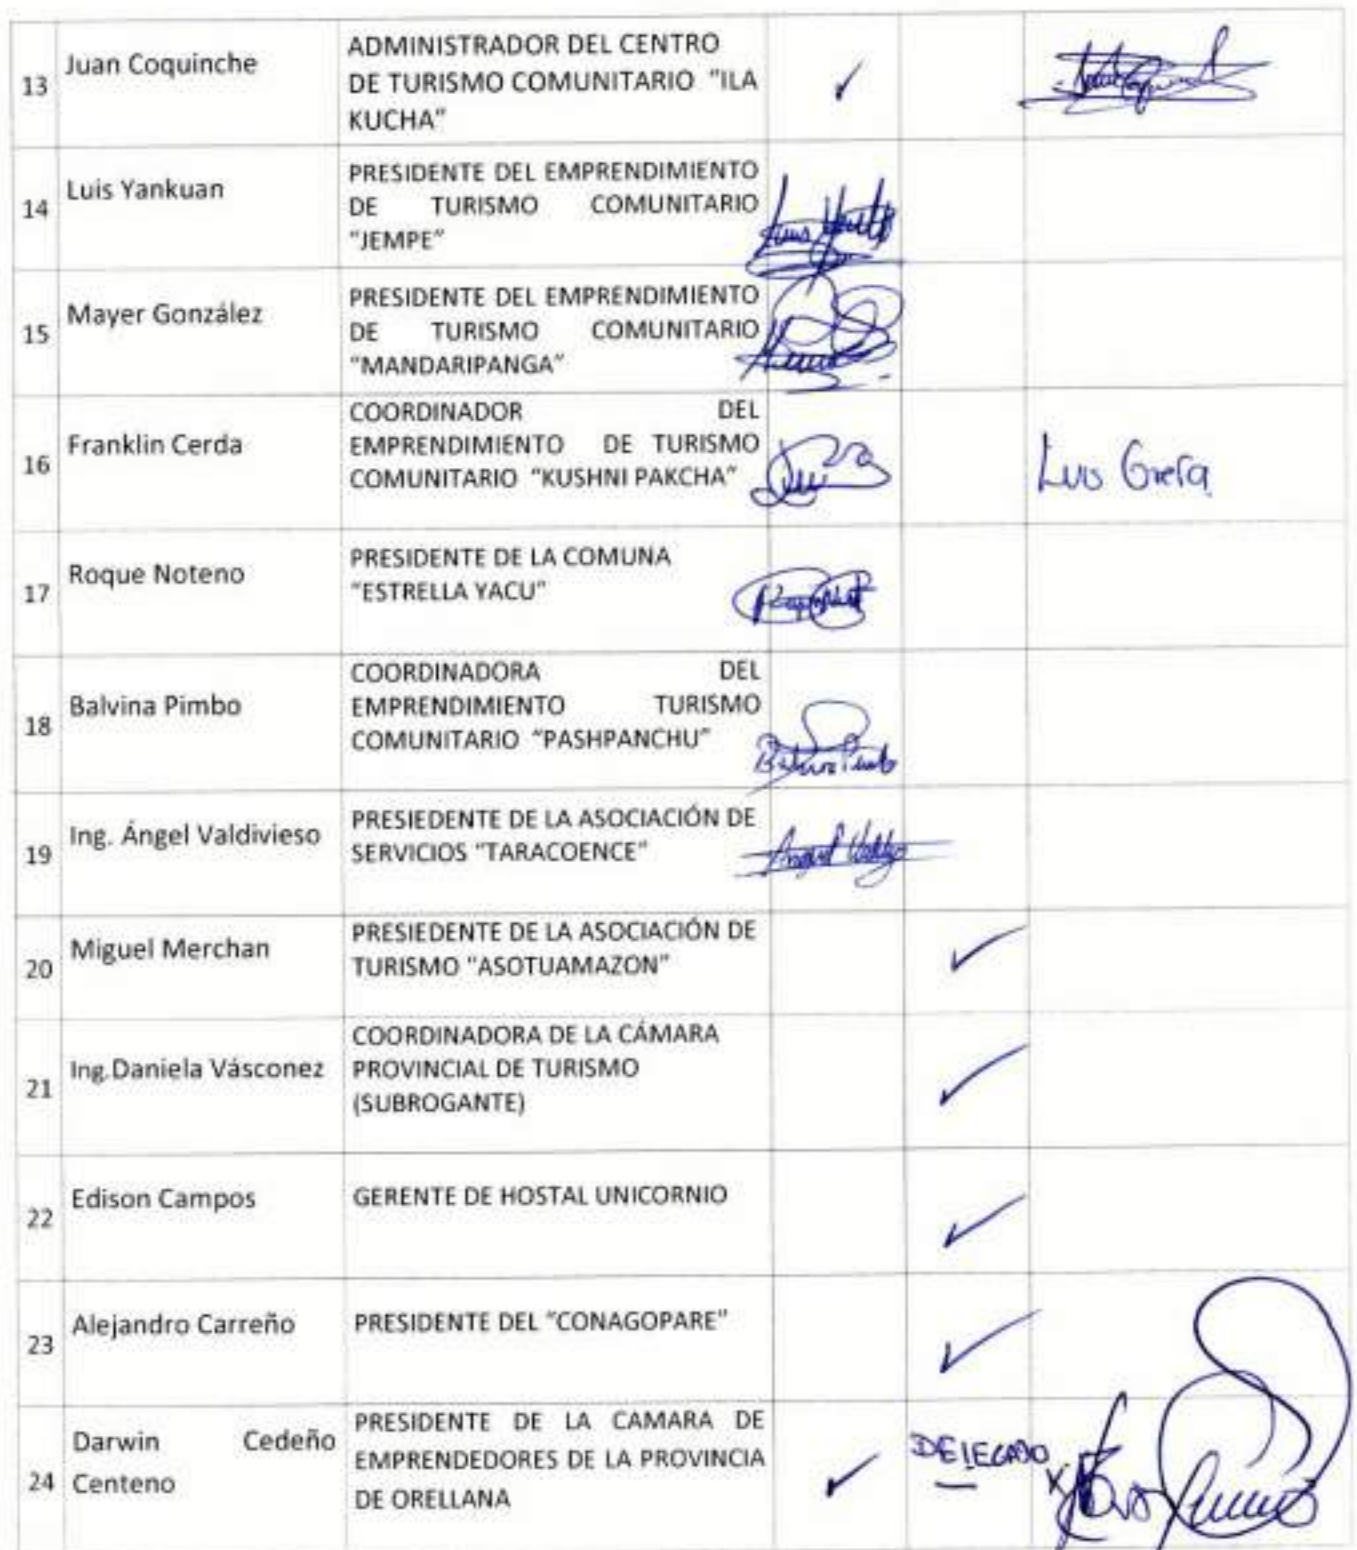 13 Juan Coquinche
ADMINISTRADOR DEL CENTRO
DE TURISMO COMUNITARIO "ILA
KUCHA"
14 Luis Yankuan
PRESIDENTE DEL EMPRENDIMIENTO
DE TURISMO COMUNITARIO
"JEMPE"
15 Mayer González
PRESIDENTE DEL EMPRENDIMIENTO
DE TURISMO COMUNITARIO
"MANDARIPANGA"
16 Franklin Cerda
COORDINADOR DEL
EMPRENDIMIENTO DE TURISMO
COMUNITARIO "KUSHNI PAKCHA"
Luis
17 Roque Noteno
PRESIDENTE DE LA COMUNA
"ESTRELLA YACU"
18 Balvina Pimbo
COORDINADORA DEL
EMPRENDIMIENTO TURISMO
COMUNITARIO "PASHPANCHU"
19 Ing. Ángel Valdivieso
PRESIEDENTE DE LA ASOCIACIÓN DE
SERVICIOS "TARACOENCE"
20 Miguel Merchan
PRESIEDENTE DE LA ASOCIACIÓN DE
TURISMO "ASOTUAMAZON"
21 Ing.Daniela Vásconez
COORDINADORA DE LA CÁMARA
PROVINCIAL DE TURISMO
(SUBROGANTE)
22 Edison Campos
GERENTE DE HOSTAL UNICORNIO
23 Alejandro Carreño
PRESIDENTE DEL "CONAGOPARE"
24 Darwin Cedeño
Centeno
PRESIDENTE DE LA CAMARA DE
EMPRENDEDORES DE LA PROVINCIA
DE ORELLANA
DELEGADO